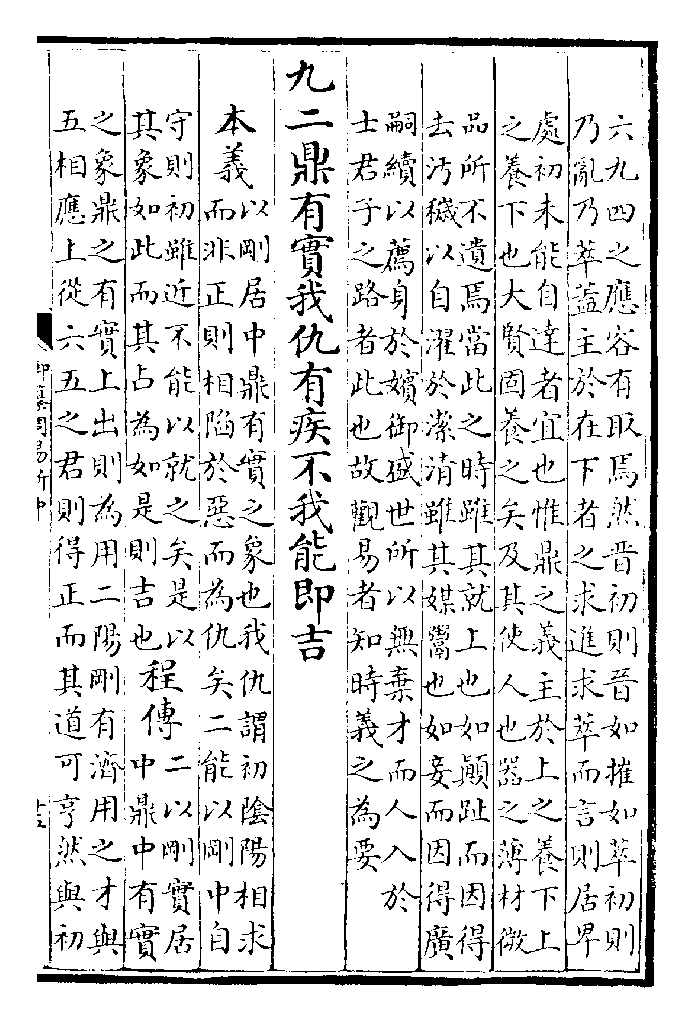 六九四之應容有取焉然晉初則晉如摧如萃初則
乃亂乃萃蓋主於在下者之求進求萃而言則居卑
處初未能自達者宜也惟鼎之義主於上之養下上
之養下也大賢固養之矣及其使人也器之薄材微
品所不遺焉當此之時雖其就上也如顛趾而因得
去汚穢以自濯於潔清雖其媒鬻也如妾而因得廣
嗣續以薦身於嬪御盛世所以無棄才而人入於
士君子之路者此也故觀易者知時義之為要
九二鼎有實我仇有疾不我能即吉
本義
以剛居中鼎有實之象也我仇謂初陰陽相求
而非正則相陷於惡而為仇矣二能以剛中自
守則初雖近不能以就之矣是以
其象如此而其占為如是則吉也
程傳
二以剛實居
中鼎中有實
之象鼎之有實上出則為用二陽剛有濟用之才與
五相應上從六五之君則得正而其道可亨然與初
御纂周易折中